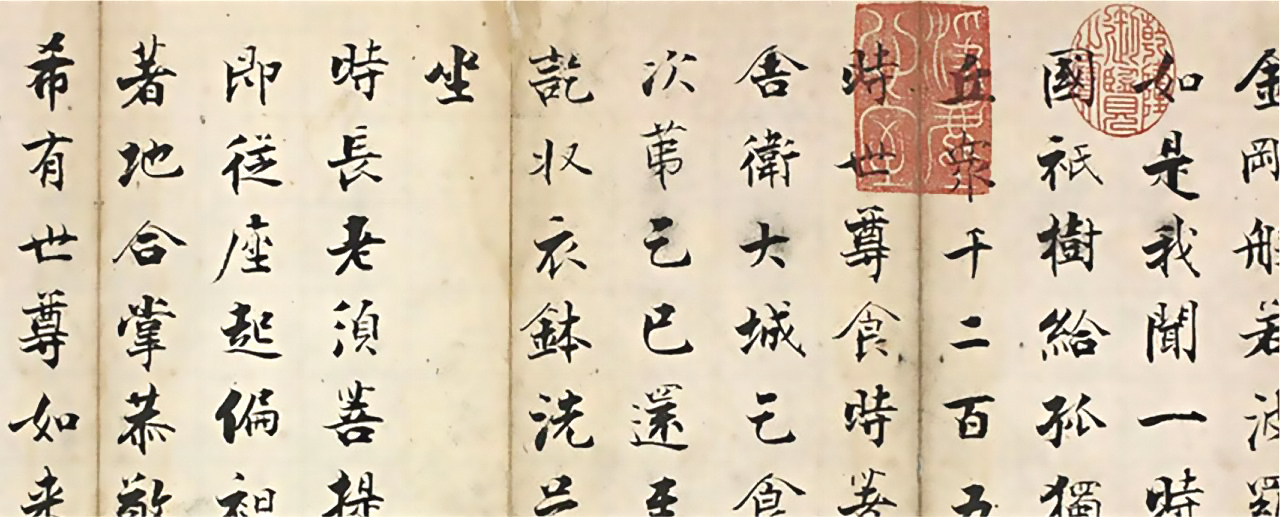 金岡般若波羅
如是我聞一時
國祇樹給孤獨
丘衆千二百五
時世尊食時著
舍衛大城乞食
次苐乞已還至
訖収衣鉢洗足
坐
時長老湏菩提
即從座起偏袒
著地合掌恭敬
希有世尊如来
乾隆御覽之